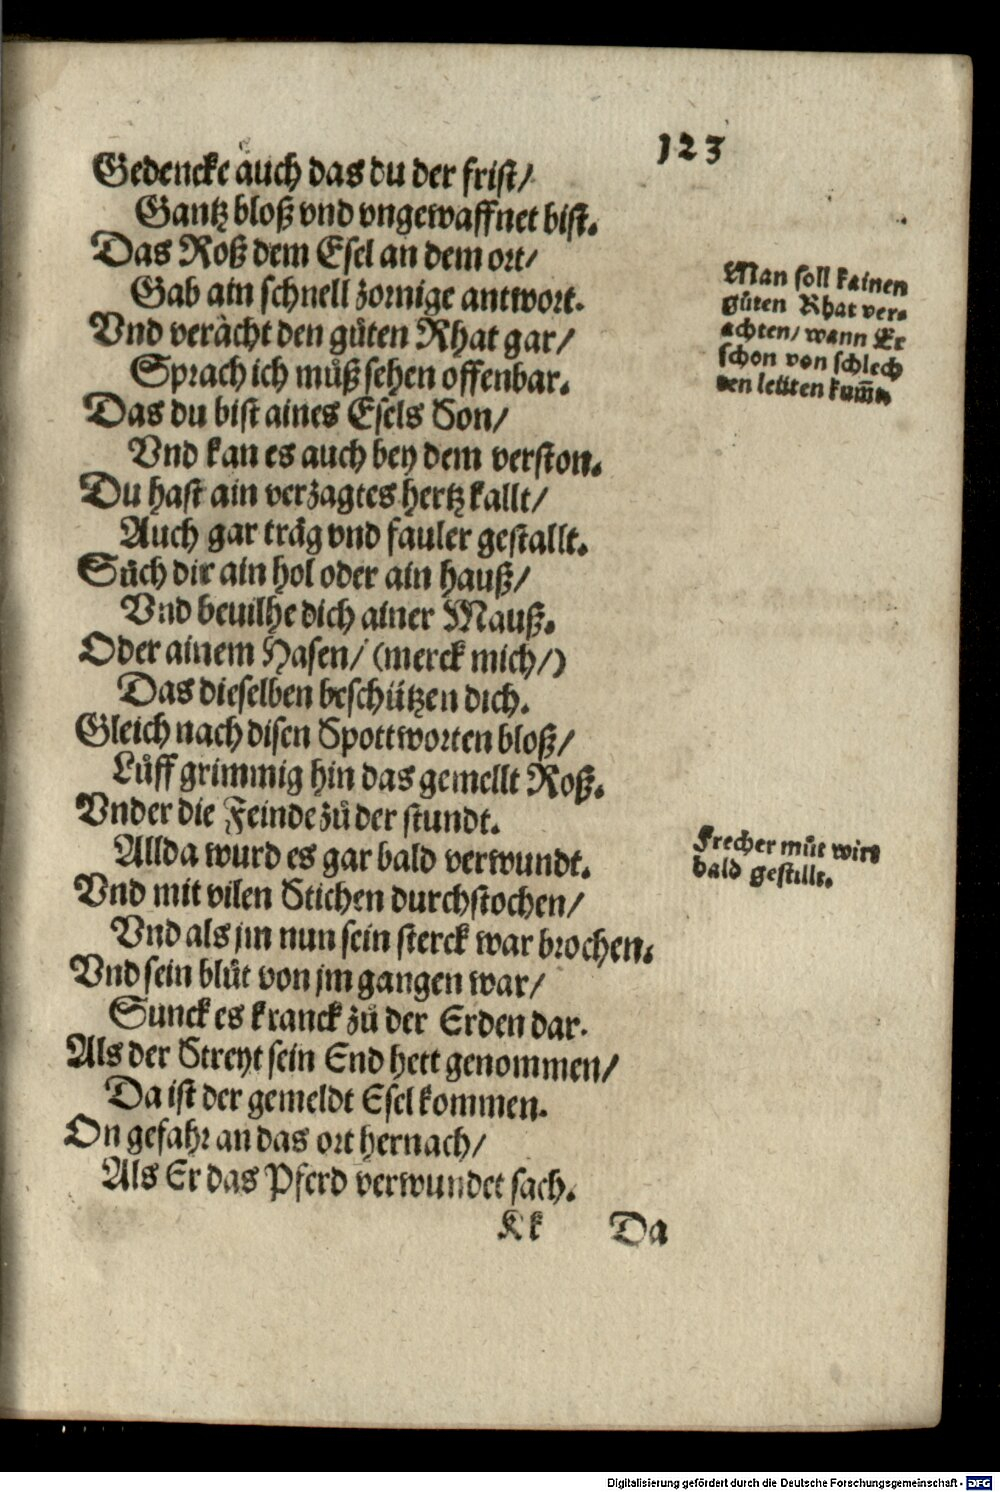 123
Gedencke auch das du der frist/
Gantz bloß vnd vngewaffnet bist.
Das Roß dem Esel an dem ort/
Gab ain schnell zornige antwort.
Vnd veràcht den gůten Rhat gar/
Sprach ich můß sehen offenbar.
Das du bist aines Esels Son/
Vnd kan es auch bey dem verston.
Du hast ain verzagtes hertz kallt/
Auch gar träg vnd fauler gestallt.
Sůch dir ain hol oder ain hauß/
Vnd beuilhe dich ainer Mauß.
Oder ainem Hasen/ (merck mich/)
Das dieselben beschützen dich.
Gleich nach disen Spottworten bloß/
Lůff grimmig hin das gemellt Roß.
Vnder die Feinde zů der stundt.
Allda wurd es gar bald verwundt.
Vnd mit vilen Stichen durchstochen/
Vnd als jm nun sein sterck war brochen.
Vnd sein blůt von jm gangen war/
Sunck es kranck zů der Erden dar.
Als der Streyt sein End hett genommen/
Da ist der gemeldt Esel kommen.
On gefahr an das ort hernach/
Als Er das Pferd verwundet sach.
Kk Da
Man soll kainen
gůten Rhat ver-
achten/ wann Er
schon von schlech
ten leüten kum̃t
Frecher můt wird
bald gestillt.
Digitalisierung gefördert durch die Deutsche Forschungsgemeinschaft - DFG